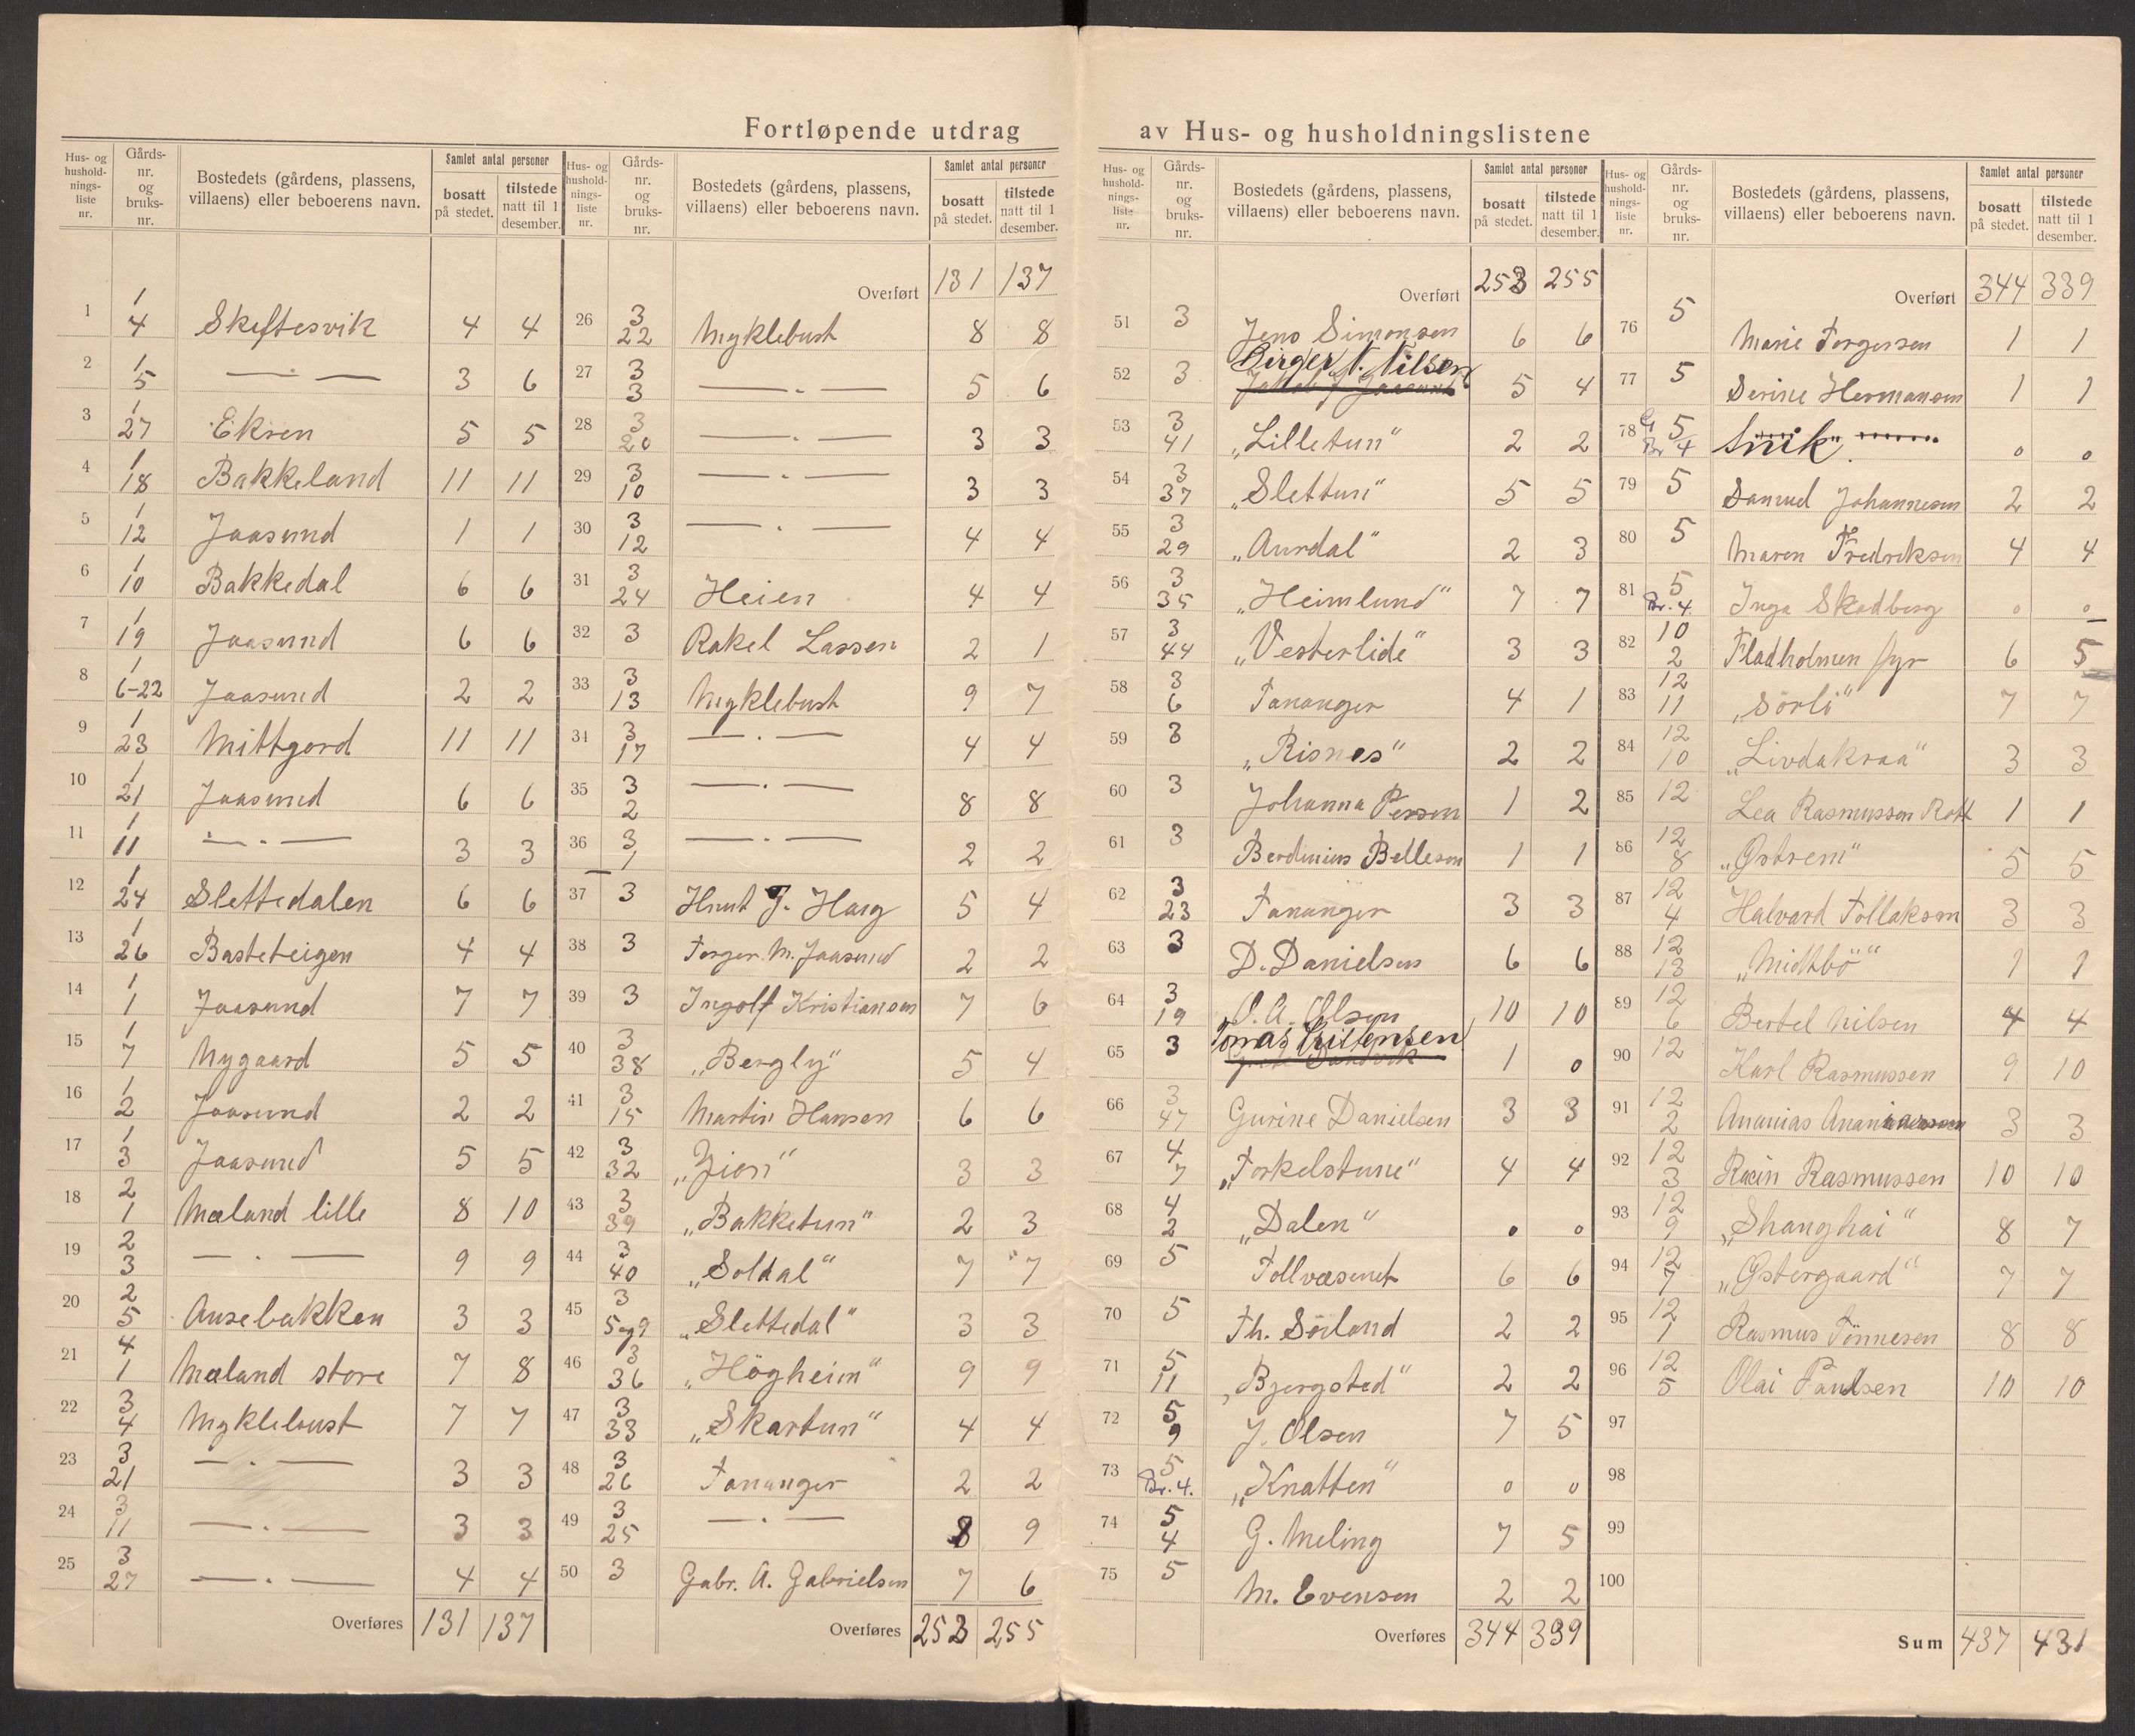 Fortløpende utdrag av Hus- og husholdningslistene
Hus- og husholdningsliste nr. | Gårds-nr. og bruks-nr. | Bostedets (gårdens, plassens, villaens) eller beboerens navn. | Samlet antal personer bosatt på stedet. | tilstede natt til 1 desember.
1 | 1 4 | Skeftesvik | 4 | 4
2 | 1 5 | — . — | 3 | 6
3 | 1 27 | Ekren | 5 | 5
4 | 1 18 | Bakkeland | 11 | 11
5 | 1 12 | Jaasund | 1 | 1
6 | 1 10 | Bakkedal | 6 | 6
7 | 1 19 | Jaasund | 6 | 6
8 | 1 6-22 | Jaasund | 2 | 2
9 | 1 23 | Mittgord | 11 | 11
10 | 1 21 | Jaasund | 6 | 6
11 | 1 11 | — . — | 3 | 3
12 | 1 24 | Slettedalen | 6 | 6
13 | 1 26 | Basteteigen | 4 | 4
14 | 1 1 | Jaasund | 7 | 7
15 | 1 7 | Nygaard | 5 | 5
16 | 1 2 | Jaasund | 2 | 2
17 | 1 3 | Jaasund | 5 | 5
18 | 2 1 | Mæland lille | 8 | 10
19 | 2 3 | — . — | 9 | 9
20 | 2 5 | Ausebakken | 3 | 3
21 | 4 1 | Mæland store | 7 | 8
22 | 3 4 | Myklebust | 7 | 7
23 | 3 21 | — . — | 3 | 3
24 | 3 11 | — . — | 3 | 3
25 | 3 27 | — . — | 4 | 4
Overføres | 131 | 137
Hus- og husholdningsliste nr. | Gårds-nr. og bruks-nr. | Bostedets (gårdens, plassens, villaens) eller beboerens navn. | Samlet antal personer bosatt på stedet. | tilstede natt til 1 desember.
Overført | 131 | 137
26 | 3 22 | Myklebust | 8 | 8
27 | 3 3 | — . — | 5 | 6
28 | 3 20 | — . — | 3 | 3
29 | 3 10 | — . — | 3 | 3
30 | 3 12 | — . — | 4 | 4
31 | 3 24 | Heien | 4 | 4
32 | 3 | Rakel Lassen | 2 | 1
33 | 3 13 | Myklebust | 9 | 7
34 | 3 17 | — . — | 4 | 4
35 | 3 2 | — . — | 8 | 8
36 | 3 1 | — . — | 2 | 2
37 | 3 | Knut J. Haug | 5 | 4
38 | 3 | Torger M. Jaasund | 2 | 2
39 | 3 | Ingolf Kristiansen | 7 | 6
40 | 3 38 | „Bergly" | 5 | 4
41 | 3 15 | Martin Hansen | 6 | 6
42 | 3 32 | „Zion" | 3 | 3
43 | 3 39 | „Bakketun" | 2 | 3
44 | 3 40 | „Soldal" | 7 | 7
45 | 3 5 og 9 | „Slettedal" | 3 | 3
46 | 3 36 | „Högheim" | 9 | 9
47 | 3 33 | „Skartun" | 4 | 4
48 | 3 26 | Tananger | 2 | 2
49 | 3 25 | — . — | 8 | 9
50 | 3 | Gabr. A. Gabrielsen | 7 | 6
Overføres | 253 | 255
Hus- og husholdningsliste nr. | Gårds-nr. og bruks-nr. | Bostedets (gårdens, plassens, villaens) eller beboerens navn. | Samlet antal personer bosatt på stedet. | tilstede natt til 1 desember.
Overført | 253 | 255
51 | 3 | Jens Simonsen | 6 | 6
52 | 3 | Birger N. Nilsen | 5 | 4
53 | 3 41 | „Lilletun" | 2 | 2
54 | 3 37 | „Slettun" | 5 | 5
55 | 3 29 | „Aurdal" | 2 | 3
56 | 3 35 | „Heimlund" | 7 | 7
57 | 3 44 | „Vesterlide" | 3 | 3
58 | 3 6 | Tananger | 4 | 1
59 | 3 | „Risnes" | 2 | 2
60 | 3 | Johanna Persen | 1 | 2
61 | 3 | Berdinius Bellesen | 1 | 1
62 | 3 23 | Tananger | 3 | 3
63 | 3 | D. Danielsen | 6 | 6
64 | 3 19 | O. A. Olsen | 10 | 10
65 | 3 | Tomas Kristensen | 1 | 0
66 | 3 47 | Gurine Danielsen | 3 | 3
67 | 4 7 | „Torkelstune" | 4 | 4
68 | 4 2 | „Dalen" | 0 | 0
69 | 5 | Tollvæsenet | 6 | 6
70 | 5 | Th. Sörland | 2 | 2
71 | 5 11 | „Bjergsted" | 2 | 2
72 | 5 9 | J. Olsen | 7 | 5
73 | 5 Br. 4. | „Knatten" | 0 | 0
74 | 5 4 | G. Meling | 7 | 5
75 | 5 | M. Evensen | 2 | 2
Overføres | 344 | 339
Hus- og husholdningsliste nr. | Gårds-nr. og bruks-nr. | Bostedets (gårdens, plassens, villaens) eller beboerens navn. | Samlet antal personer bosatt på stedet. | tilstede natt til 1 desember.
Overført | 344 | 339
76 | 5 | Marie Torgersen | 1 | 1
77 | 5 | Serine Hermansen | 1 | 1
78 | G 5 Br 4 | Snik | 0 | 0
79 | 5 | Samuel Johannesen | 2 | 2
80 | 5 | Maren Fredriksen | 4 | 4
81 | 5 Br. 4. | Inga Skadberg | 0 | 0
82 | 10 2 | Fladholmen fyr | 6 | 5
83 | 12 11 | „Sörli" | 7 | 7
84 | 12 10 | „Livdakraa" | 3 | 3
85 | 12 | Lea Rasmussen Rott | 1 | 1
86 | 12 8 | „Østrem" | 5 | 5
87 | 12 4 | Halvard Tollaksen | 3 | 3
88 | 12 13 | „Midtbö" | 1 | 1
89 | 12 6 | Bertel Nilsen | 4 | 4
90 | 12 | Karl Rasmussen | 9 | 10
91 | 12 2 | Ananias Ananiassen | 3 | 3
92 | 12 3 | Rasmussen | 10 | 10
93 | 12 9 | „Shanghai" | 8 | 7
94 | 12 7 | „Østergaard" | 7 | 7
95 | 12 1 | Rasmus Tönnesen | 8 | 8
96 | 12 5 | Olai Paulsen | 10 | 10
97
98
99
100
Sum | 437 | 431